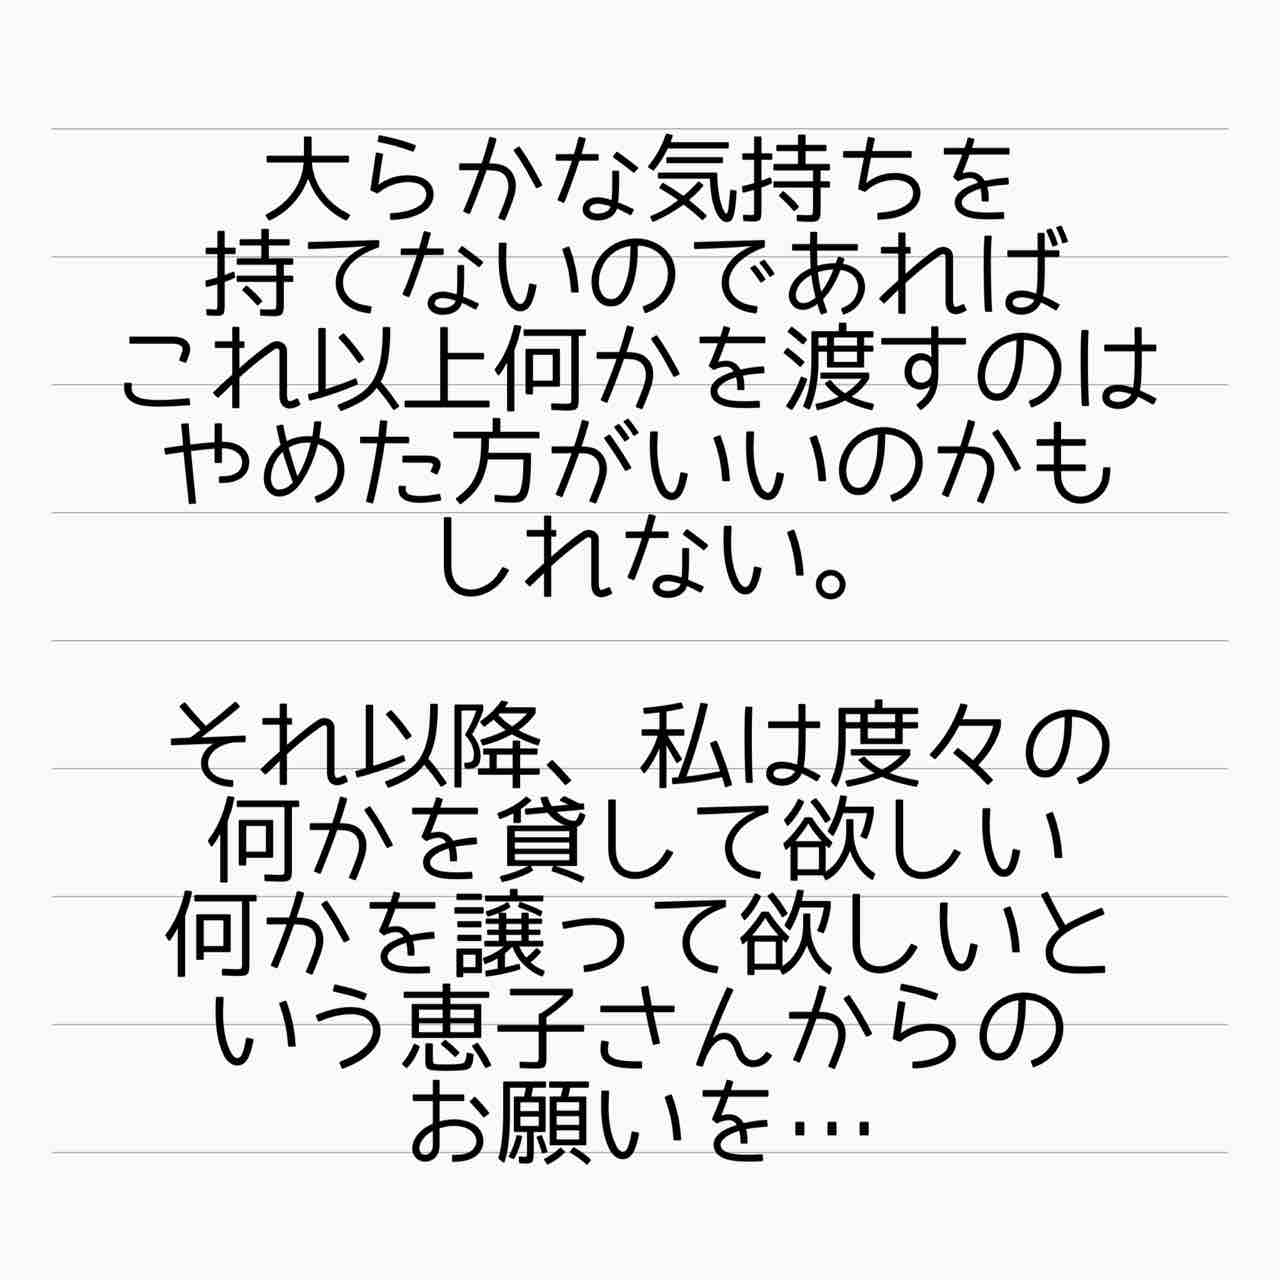 大らかな気持ちを
持てないのであれば
これ以上何かを渡すのは
やめた方がいいのかも
しれない。
それ以降、私は度々の
何かを貸して欲しい
何かを譲って欲しいと
いう恵子さんからの
お願いを…